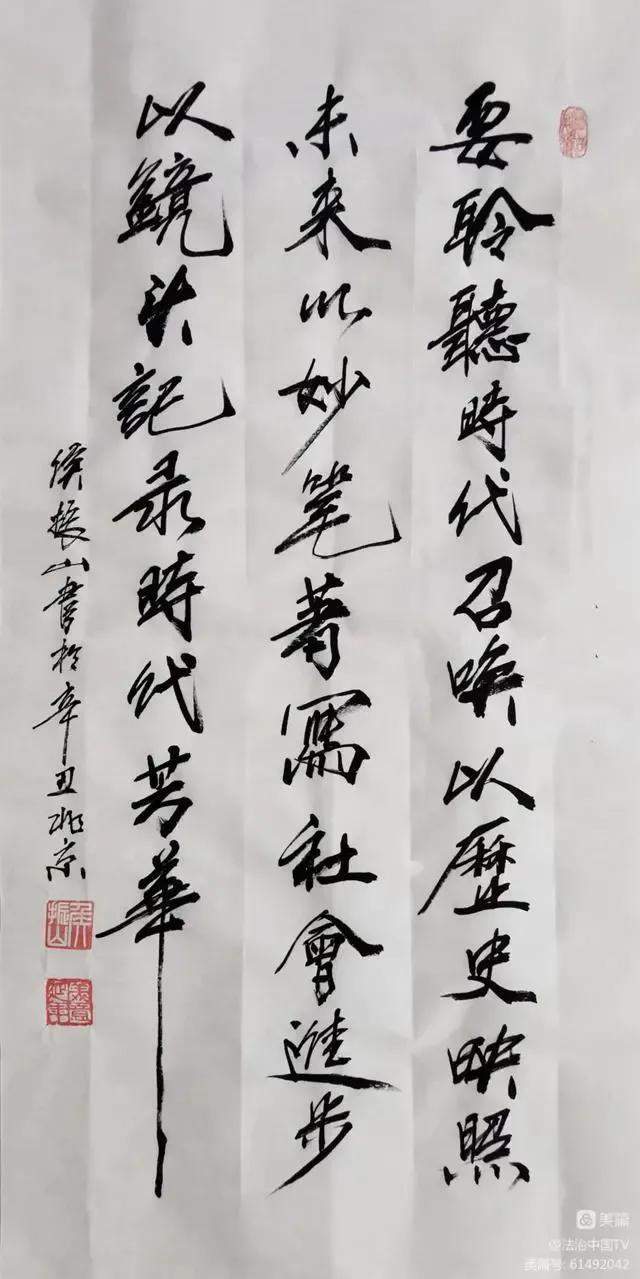 要聆聽時代召唤以歷史映照
未来以妙笔著寫社會進步
以鏡头記录時代芳華
侯振山書於辛丑北京
美篇
@法治中国TV
美篇号: 61492042